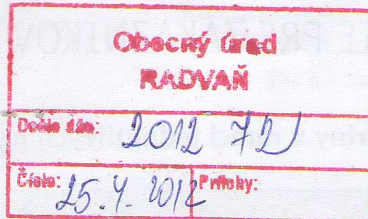 Obecný úrad
RADVAŇ
Došlo dňa: 2012 72
Číslo: 25.4.2012 Prílohy: